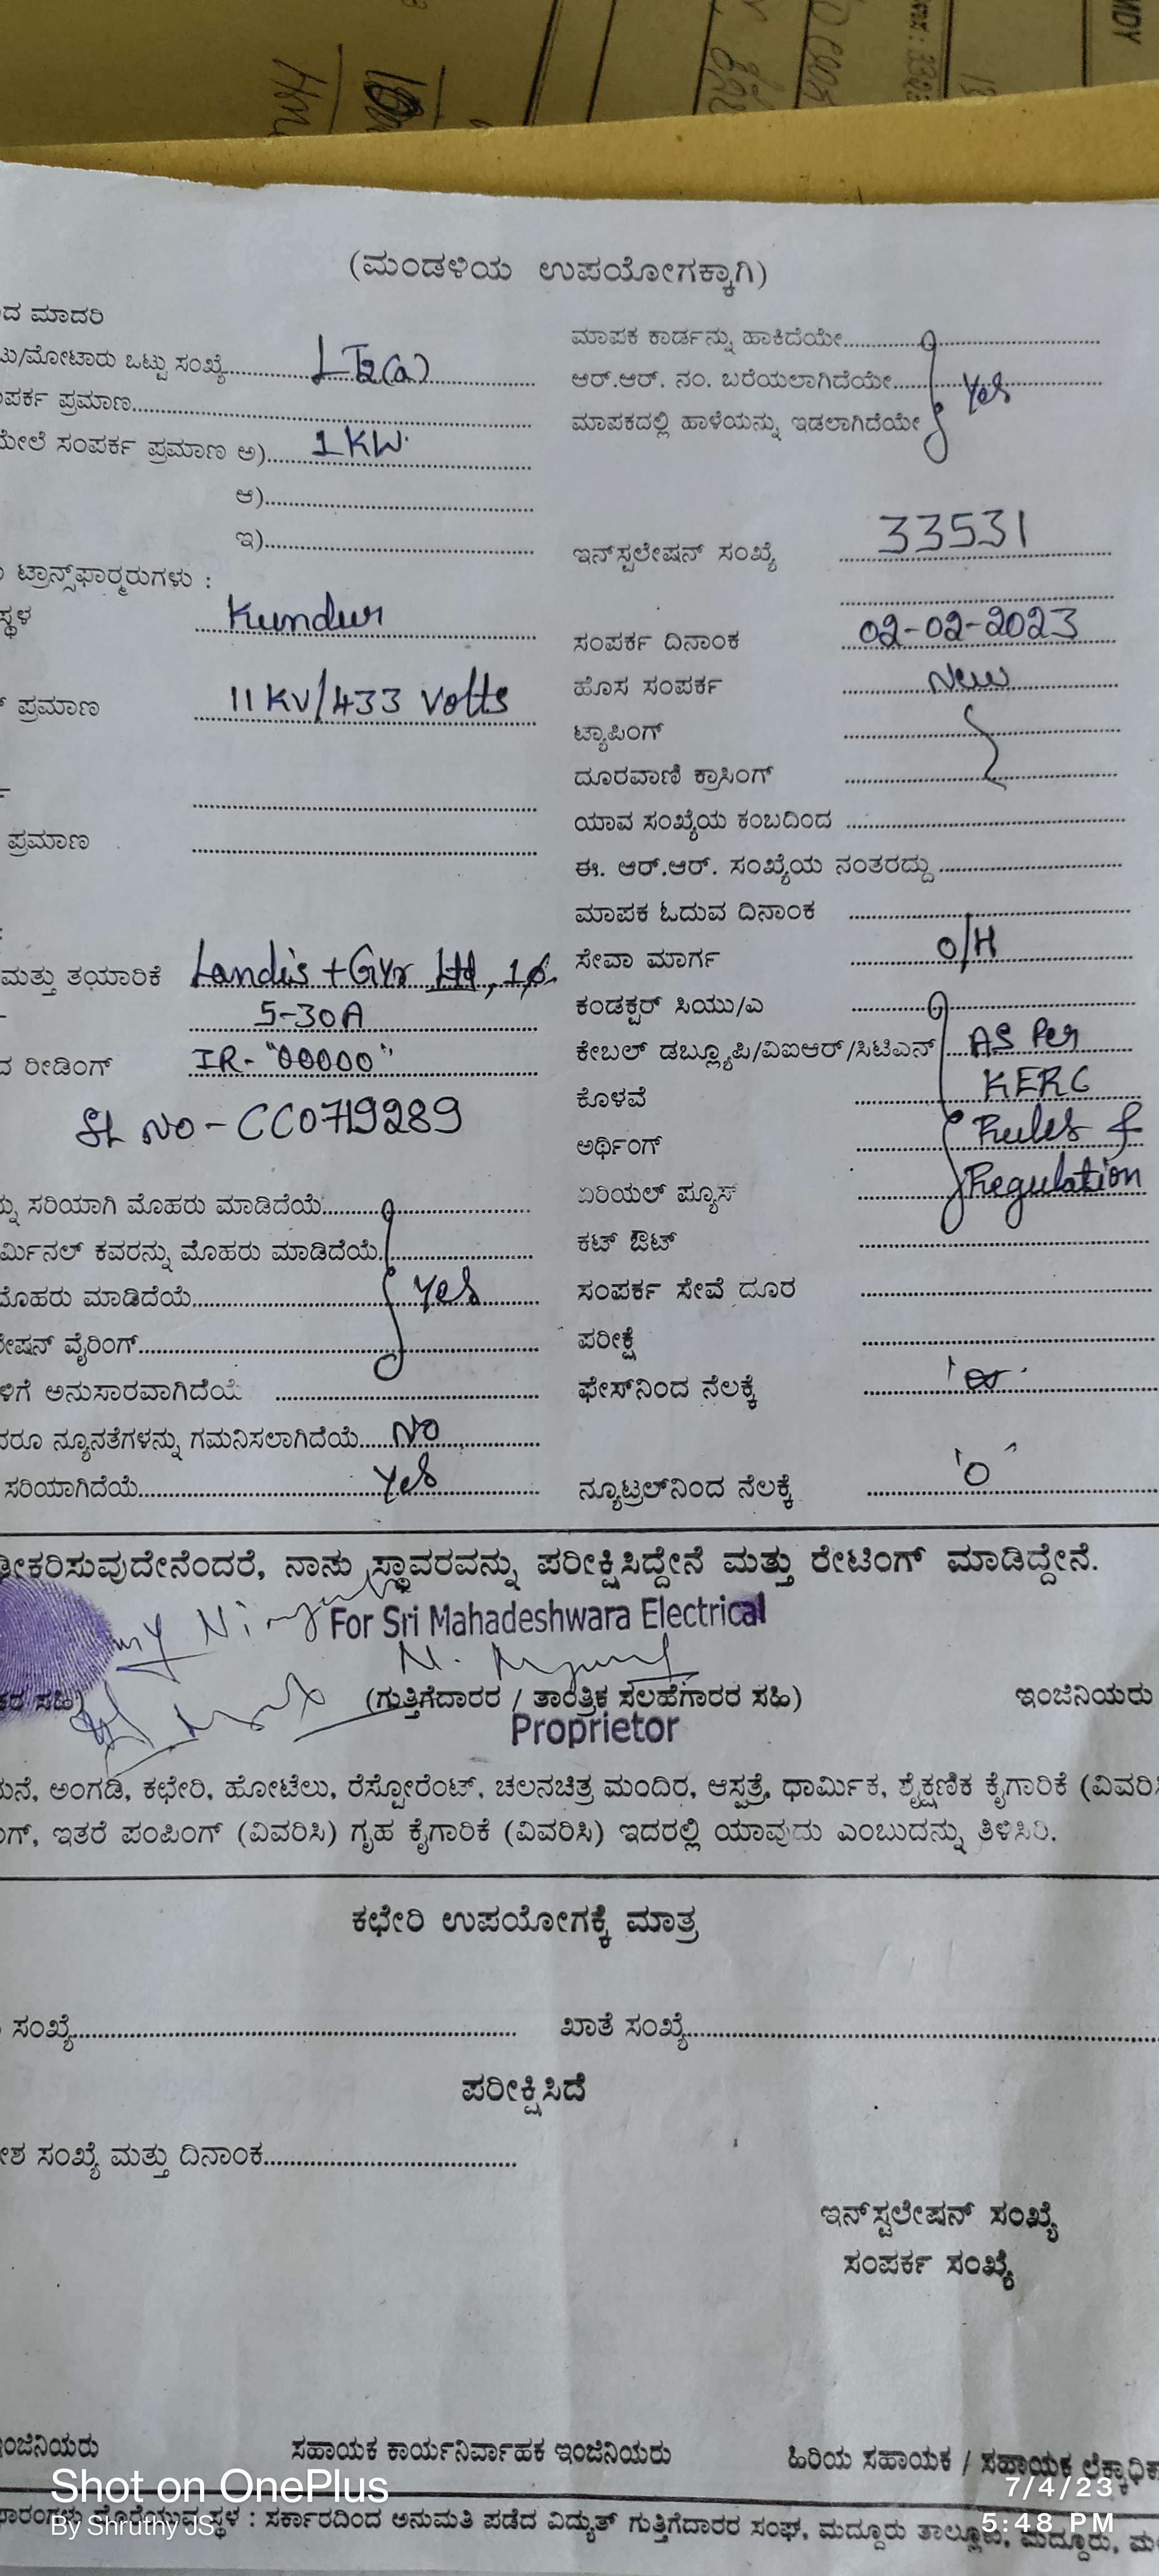 (ಮಂಡಳಿಯ ಉಪಯೋಗಕ್ಕಾಗಿ)
ದ ಮಾದರಿ
ಟು/ಮೋಟಾರು ಒಟ್ಟು ಸಂಖ್ಯೆ LT2(a)
ಪರ್ಕ ಪ್ರಮಾಣ
ಮೇಲೆ ಸಂಪರ್ಕ ಪ್ರಮಾಣ ಅ) 1KW
ಆ)
ಇ)
ಟ್ರಾನ್ಸ್‌ಫಾರ್ಮರುಗಳು :
ಸ್ಥಳ Kundur
ಪ್ರಮಾಣ 11KV/433 Volts
ಪ್ರಮಾಣ
ಮತ್ತು ತಯಾರಿಕೆ Landis + Gyr Ltd, 1ϕ
5-30A
ದ ರೀಡಿಂಗ್ IR-"00000"
SL NO - CC0719289
ನ್ನು ಸರಿಯಾಗಿ ಮೊಹರು ಮಾಡಿದೆಯೆ
ರ್ಮಿನಲ್ ಕವರನ್ನು ಮೊಹರು ಮಾಡಿದೆಯೆ
ಮೊಹರು ಮಾಡಿದೆಯೆ Yes
ೇಷನ್ ವೈರಿಂಗ್
ಳಿಗೆ ಅನುಸಾರವಾಗಿದೆಯೆ
ದರೂ ನ್ಯೂನತೆಗಳನ್ನು ಗಮನಿಸಲಾಗಿದೆಯೆ NO
ಸರಿಯಾಗಿದೆಯೆ Yes
ಮಾಪಕ ಕಾರ್ಡನ್ನು ಹಾಕಿದೆಯೇ
ಆರ್.ಆರ್. ನಂ. ಬರೆಯಲಾಗಿದೆಯೇ Yes
ಮಾಪಕದಲ್ಲಿ ಹಾಳೆಯನ್ನು ಇಡಲಾಗಿದೆಯೇ
ಇನ್‌ಸ್ಟಲೇಷನ್ ಸಂಖ್ಯೆ 33531
ಸಂಪರ್ಕ ದಿನಾಂಕ 02-02-2023
ಹೊಸ ಸಂಪರ್ಕ New
ಟ್ಯಾಪಿಂಗ್
ದೂರವಾಣಿ ಕ್ರಾಸಿಂಗ್
ಯಾವ ಸಂಖ್ಯೆಯ ಕಂಬದಿಂದ
ಈ. ಆರ್.ಆರ್. ಸಂಖ್ಯೆಯ ನಂತರದ್ದು
ಮಾಪಕ ಓದುವ ದಿನಾಂಕ
ಸೇವಾ ಮಾರ್ಗ O/H
ಕಂಡಕ್ಟರ್ ಸಿಯು/ಎ
ಕೇಬಲ್ ಡಬ್ಲ್ಯೂಪಿ/ವಿಐಆರ್/ಸಿಟಿಎನ್ AS Per
ಕೊಳವೆ KERC
ಅರ್ಥಿಂಗ್ Rules &
ಏರಿಯಲ್ ಪ್ಯೂಸ್ Regulation
ಕಟ್ ಔಟ್
ಸಂಪರ್ಕ ಸೇವೆ ದೂರ
ಪರೀಕ್ಷೆ
ಫೇಸ್‌ನಿಂದ ನೆಲಕ್ಕೆ
ನ್ಯೂಟ್ರಲ್‌ನಿಂದ ನೆಲಕ್ಕೆ 'O'
ಢೀಕರಿಸುವುದೇನೆಂದರೆ, ನಾನು ಸ್ಥಾವರವನ್ನು ಪರೀಕ್ಷಿಸಿದ್ದೇನೆ ಮತ್ತು ರೇಟಿಂಗ್ ಮಾಡಿದ್ದೇನೆ.
For Sri Mahadeshwara Electrical
ಕರ ಸಹಿ) (ಗುತ್ತಿಗೆದಾರರ / ತಾಂತ್ರಿಕ ಸಲಹೆಗಾರರ ಸಹಿ) ಇಂಜಿನಿಯರು
Proprietor
ಮನೆ, ಅಂಗಡಿ, ಕಛೇರಿ, ಹೋಟೆಲು, ರೆಸ್ಟೋರೆಂಟ್, ಚಲನಚಿತ್ರ ಮಂದಿರ, ಆಸ್ಪತ್ರೆ, ಧಾರ್ಮಿಕ, ಶೈಕ್ಷಣಿಕ ಕೈಗಾರಿಕೆ (ವಿವರಿಸಿ
ಗ್, ಇತರೆ ಪಂಪಿಂಗ್ (ವಿವರಿಸಿ) ಗೃಹ ಕೈಗಾರಿಕೆ (ವಿವರಿಸಿ) ಇದರಲ್ಲಿ ಯಾವುದು ಎಂಬುದನ್ನು ತಿಳಿಸಿರಿ.
ಕಛೇರಿ ಉಪಯೋಗಕ್ಕೆ ಮಾತ್ರ
ಸಂಖ್ಯೆ ಖಾತೆ ಸಂಖ್ಯೆ
ಪರೀಕ್ಷಿಸಿದೆ
ಶ ಸಂಖ್ಯೆ ಮತ್ತು ದಿನಾಂಕ
ಇನ್‌ಸ್ಟಲೇಷನ್ ಸಂಖ್ಯೆ
ಸಂಪರ್ಕ ಸಂಖ್ಯೆ
ಇಂಜಿನಿಯರು ಸಹಾಯಕ ಕಾರ್ಯನಿರ್ವಾಹಕ ಇಂಜಿನಿಯರು ಹಿರಿಯ ಸಹಾಯಕ / ಸಹಾಯಕ ಲೆಕ್ಕಾಧಿಕಾ
Shot on OnePlus
By Shruthy JS
7/4/23
5:48 PM
ಫಾರಂಗಳು ದೊರೆಯುವ ಸ್ಥಳ : ಸರ್ಕಾರದಿಂದ ಅನುಮತಿ ಪಡೆದ ವಿದ್ಯುತ್ ಗುತ್ತಿಗೆದಾರರ ಸಂಘ, ಮದ್ದೂರು ತಾಲ್ಲೂಕು, ಮದ್ದೂರು,